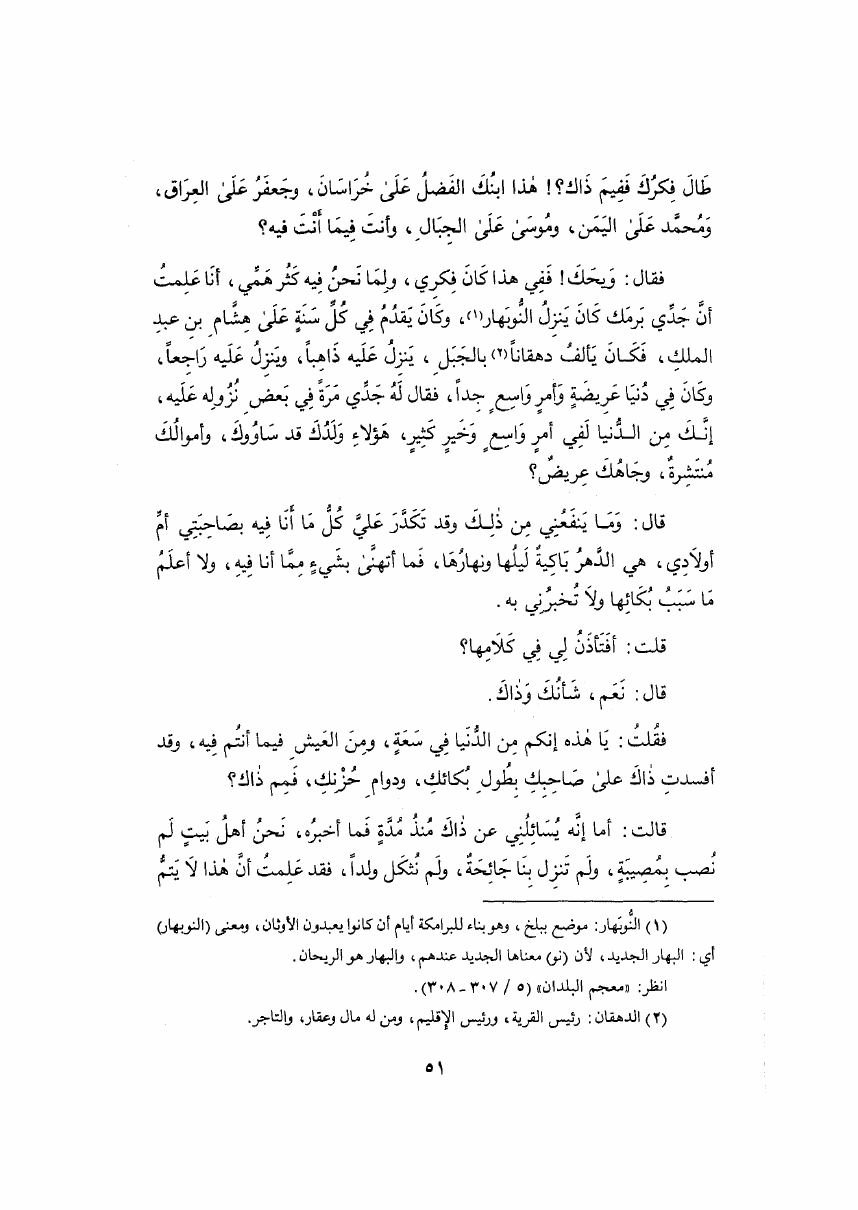 طَالَ فِكرُكَ فَفِيمَ ذَاكَ؟! هٰذا ابنُكَ الفَضلُ عَلَىٰ خُرَاسَانَ، وجَعفَرُ عَلَىٰ العِرَاق،
وَمُحمَّد عَلَىٰ اليَمَن، ومُوسَىٰ عَلَىٰ الجِبَالِ، وأنتَ فِيمَا أَنْتَ فيه؟
فقال: وَيحَكَ! فَفِي هذا كَانَ فِكرِي، ولِمَا نَحنُ فِيه كَثُر هَمِّي، أنَا عَلِمتُ
أنَّ جَدِّي بَرمَك كَانَ يَنزِلُ النُّوبَهار(١)، وكَانَ يَقدُمُ فِي كُلِّ سَنَةٍ عَلَىٰ هِشَّامِ بن عبدِ
الملكِ، فَكَـانَ يَألفُ دهقاناً(٢) بالجَبَلِ، يَنزِلُ عَلَيه ذَاهِباً، ويَنزِلُ عَلَيه رَاجعاً،
وكَانَ فِي دُنيَا عَرِيضَةٍ وَأمرٍ وَاسِعٍ جِداً، فقال لَهُ جَدِّي مَرَةً فِي بَعضِ نُزُولِه عَلَيه،
إنَّـكَ مِن الـدُّنيا لَفِي أمرٍ وَاسِعٍ وَخَيرٍ كَثِيرٍ، هَؤلاءِ وَلَدُكَ قد سَاوُوكَ، وأموالُكَ
مُنتَشِرةٌ، وجَاهُكَ عرِيضٌ؟
قال: وَمَـا يَنفَعُنِي مِن ذٰلِـكَ وقد تَكَدَّرَ عَليَّ كُلُّ مَا أَنَا فِيه بصَاحِبَتِي أمِّ
أولاَدِي، هي الدَّهرُ بَاكِيةٌ لَيلُها ونهارُهَا، فَما أتهنَّىٰ بشَيءٍ مِمَّا أنا فِيهِ، ولا أعلَمُ
مَا سَبَبُ بُكَائِها ولاَ تُخبرُنِي به.
قلت: أفَتَأذَنُ لِي فِي كَلَامِها؟
قال: نَعَم، شَأنُكَ وَذَاكَ.
فقُلتُ: يَا هٰذه إنكم مِن الدُّنيَا فِي سَعَةٍ، ومِنَ العَيشِ فيما أنتُم فِيه، وقد
أفسدتِ ذَاكَ علىٰ صَاحِبِكِ بِطُولِ بُكائكِ، ودوامِ حُزْنِكِ، فَمِم ذَاكَ؟
قالت: أما إنَّه يُسَائِلُنِي عن ذَاكَ مُنذُ مُدَّةٍ فَما أخبرُه، نَحنُ أهلُ بَيتٍ لَم
نُصب بِمُصِيبَةٍ، ولَم تَنزِل بنَا جَائِحَةٌ، ولَم نُثكَل ولداً، فقد عَلِمتُ أنَّ هٰذا لاَ يَتمُّ
(١) النُّوبَهار: موضع ببلخ، وهو بناء للبرامكة أيام أن كانوا يعبدون الأوثان، ومعنى (النوبهار)
أي: البهار الجديد، لأن (نو) معناها الجديد عندهم، والبهار هو الريحان.
انظر: «معجم البلدان» (٥ / ٣٠٧ - ٣٠٨).
(٢) الدهقان: رئيس القرية، ورئيس الإقليم، ومن له مال وعقار، والتاجر.
٥١